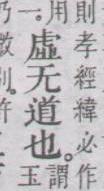 則孝經緯必作
用謂玉
一。虛无道也。
乃數別許